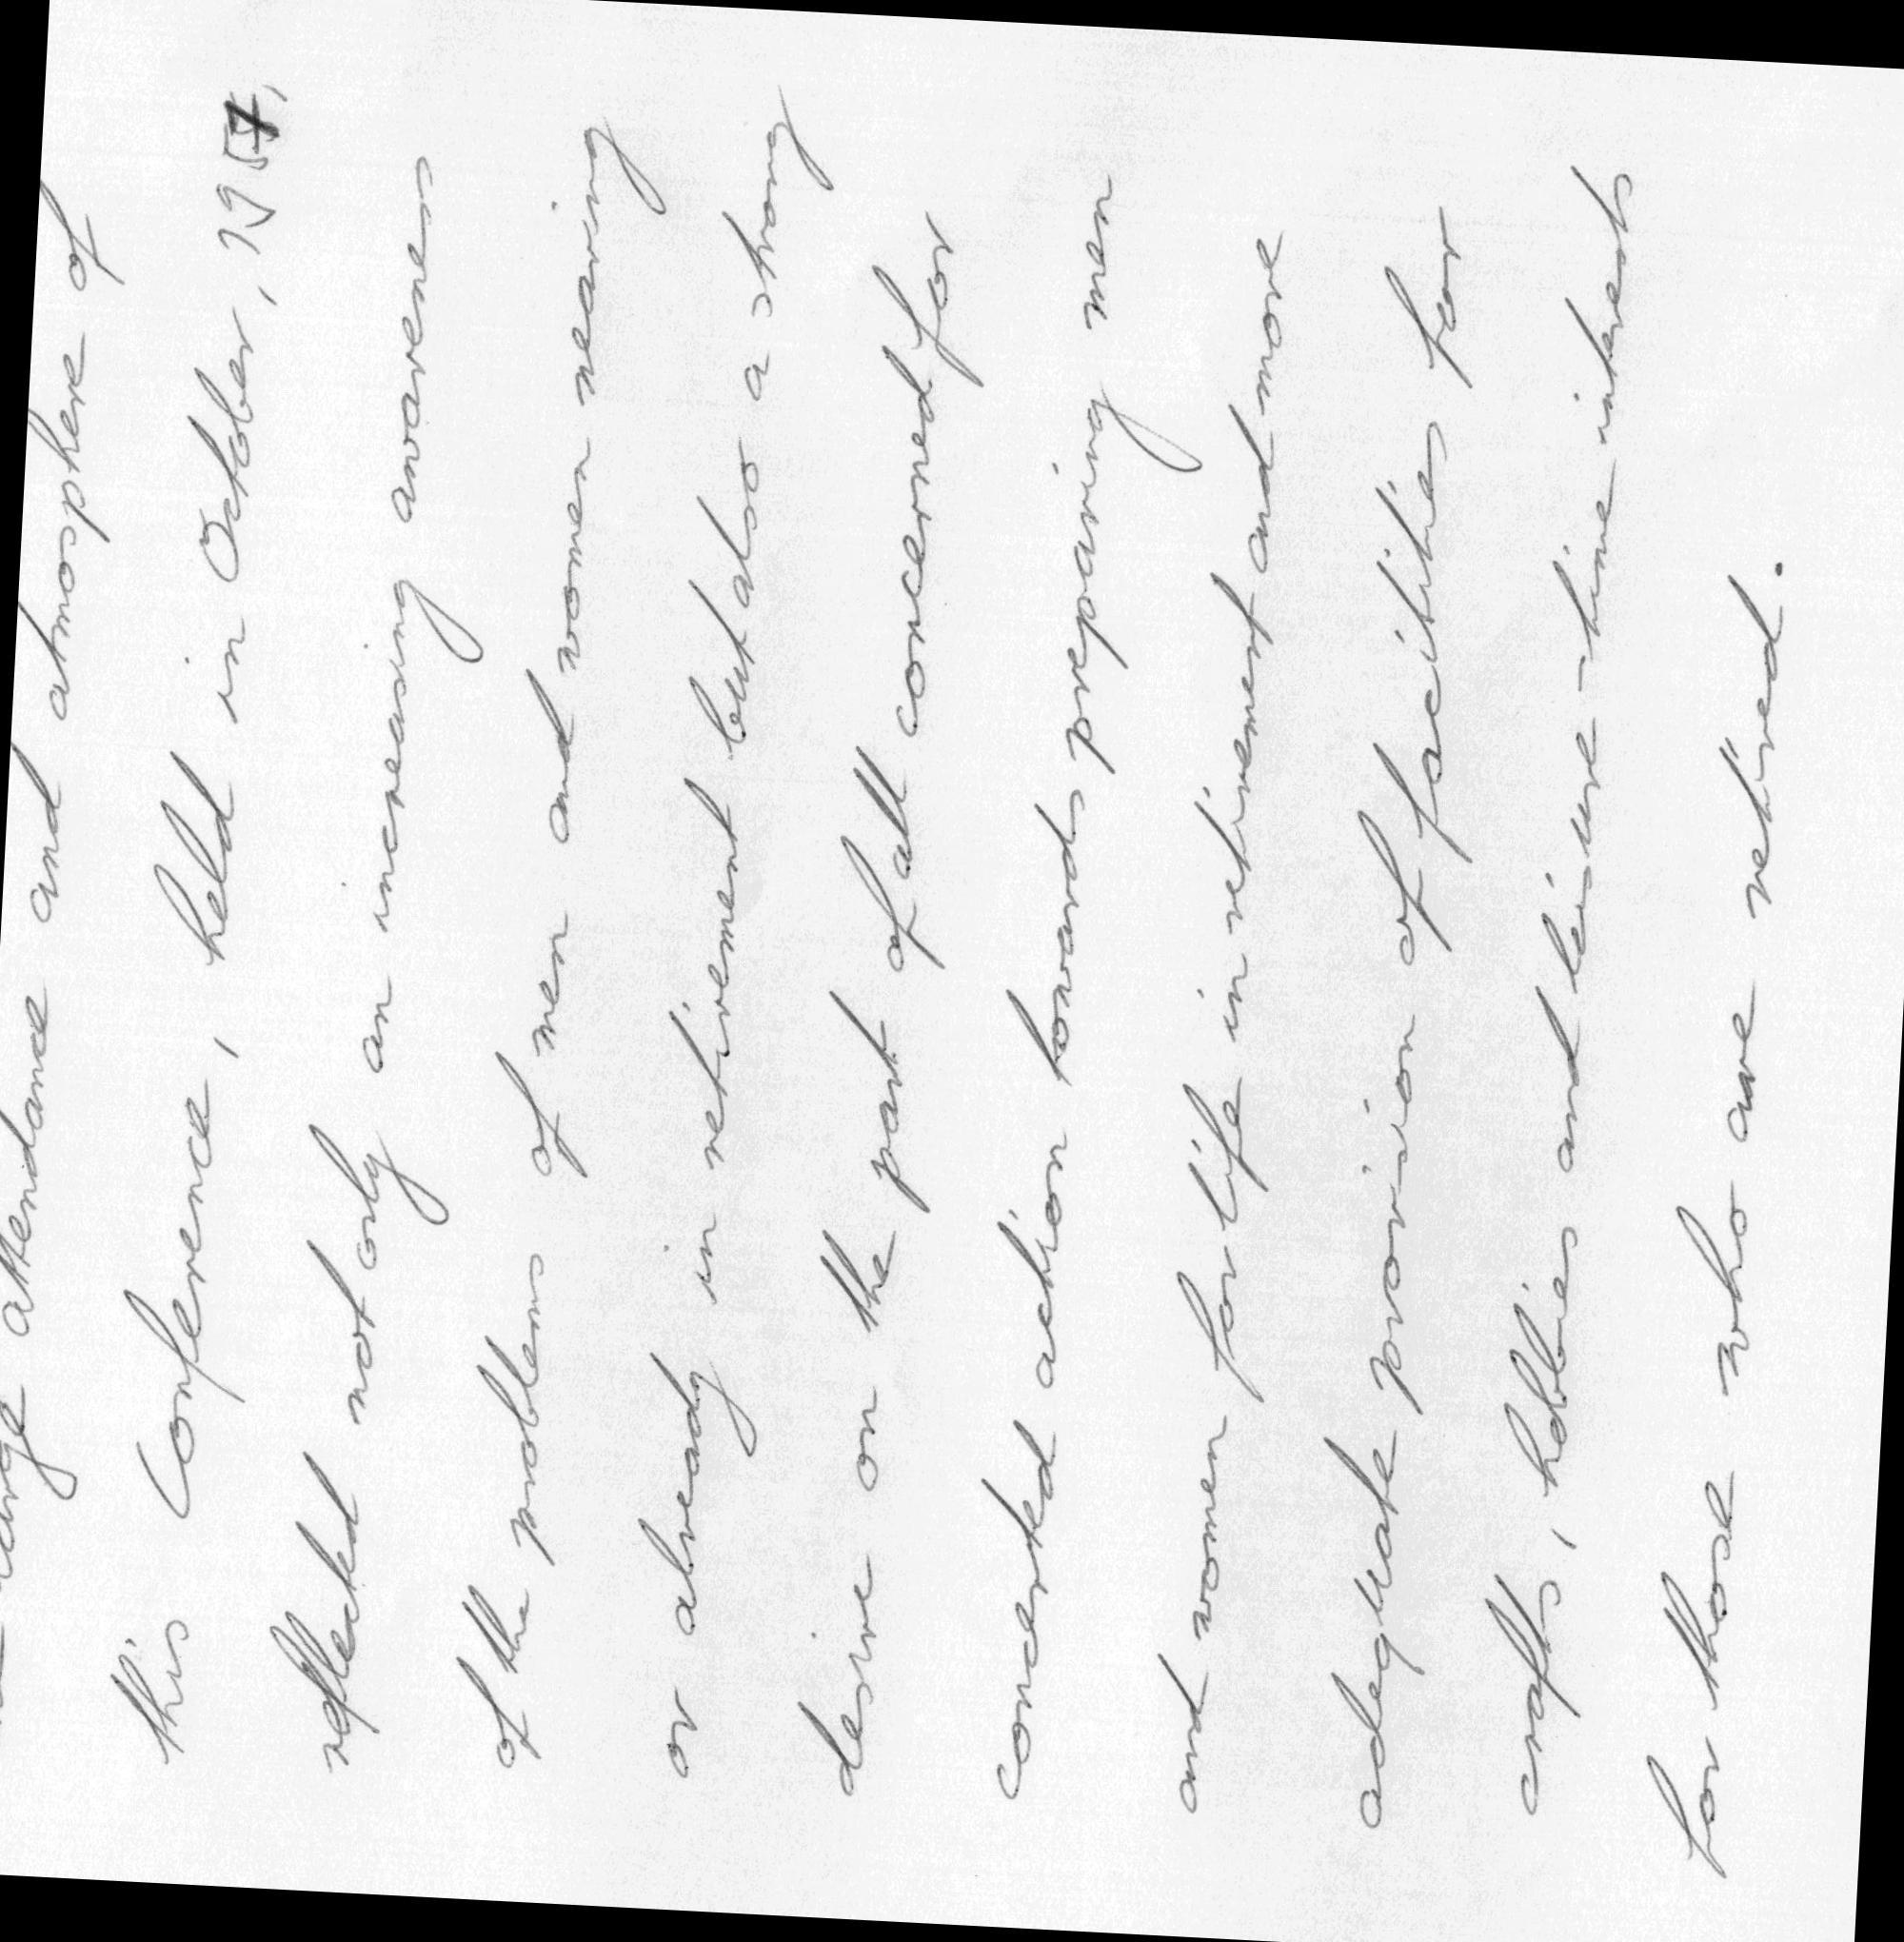 large attendance and atmosphere of
this Conference, held in October, 1957,
reflected not only an increasing awareness
of the problems of men and women nearing
or already in retirement but also a strong
desire on the part of all concerned for
concerted action towards preparing men
and women for life in retirement and more
adequate provision of facilities for
crafts, hobbies and leisure-time interests
for those who are retired.